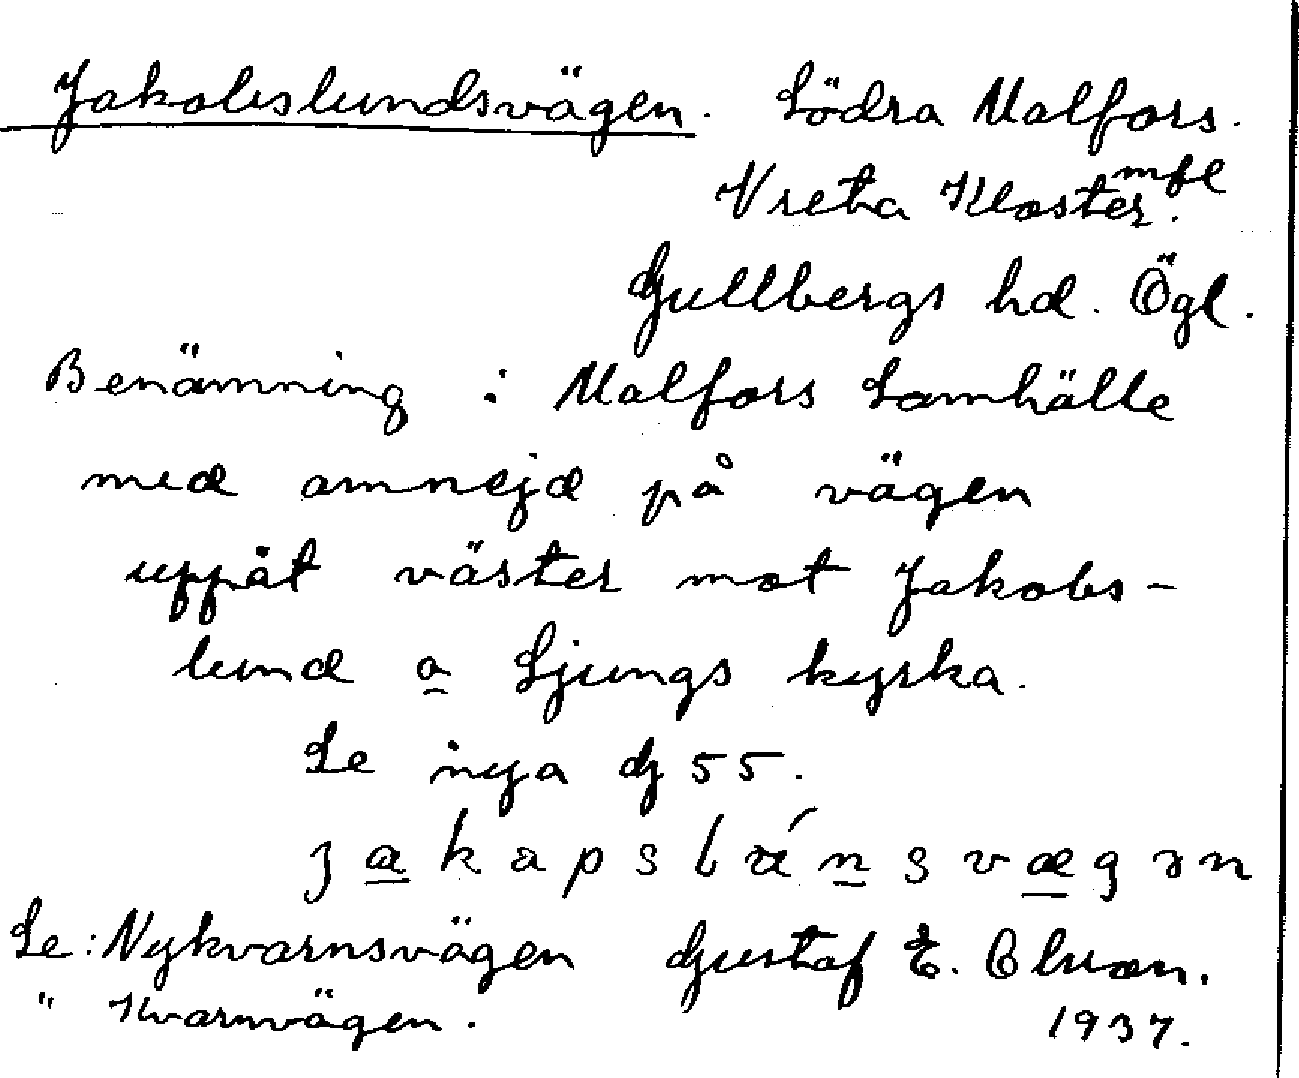 Jakobslundsvägen. Södra Malfors.
Vreta Kloster. mfl
Gullbergs hd. Ögl.
Benämning i Malfors Samhälle
med omnejd på vägen
uppåt väster mot Jakobs-
lund o Ljungs kyrka.
Se nya G 55.
Se: Nykvarnsvägen Gustaf E.
" Kvarnvägen.
1937.